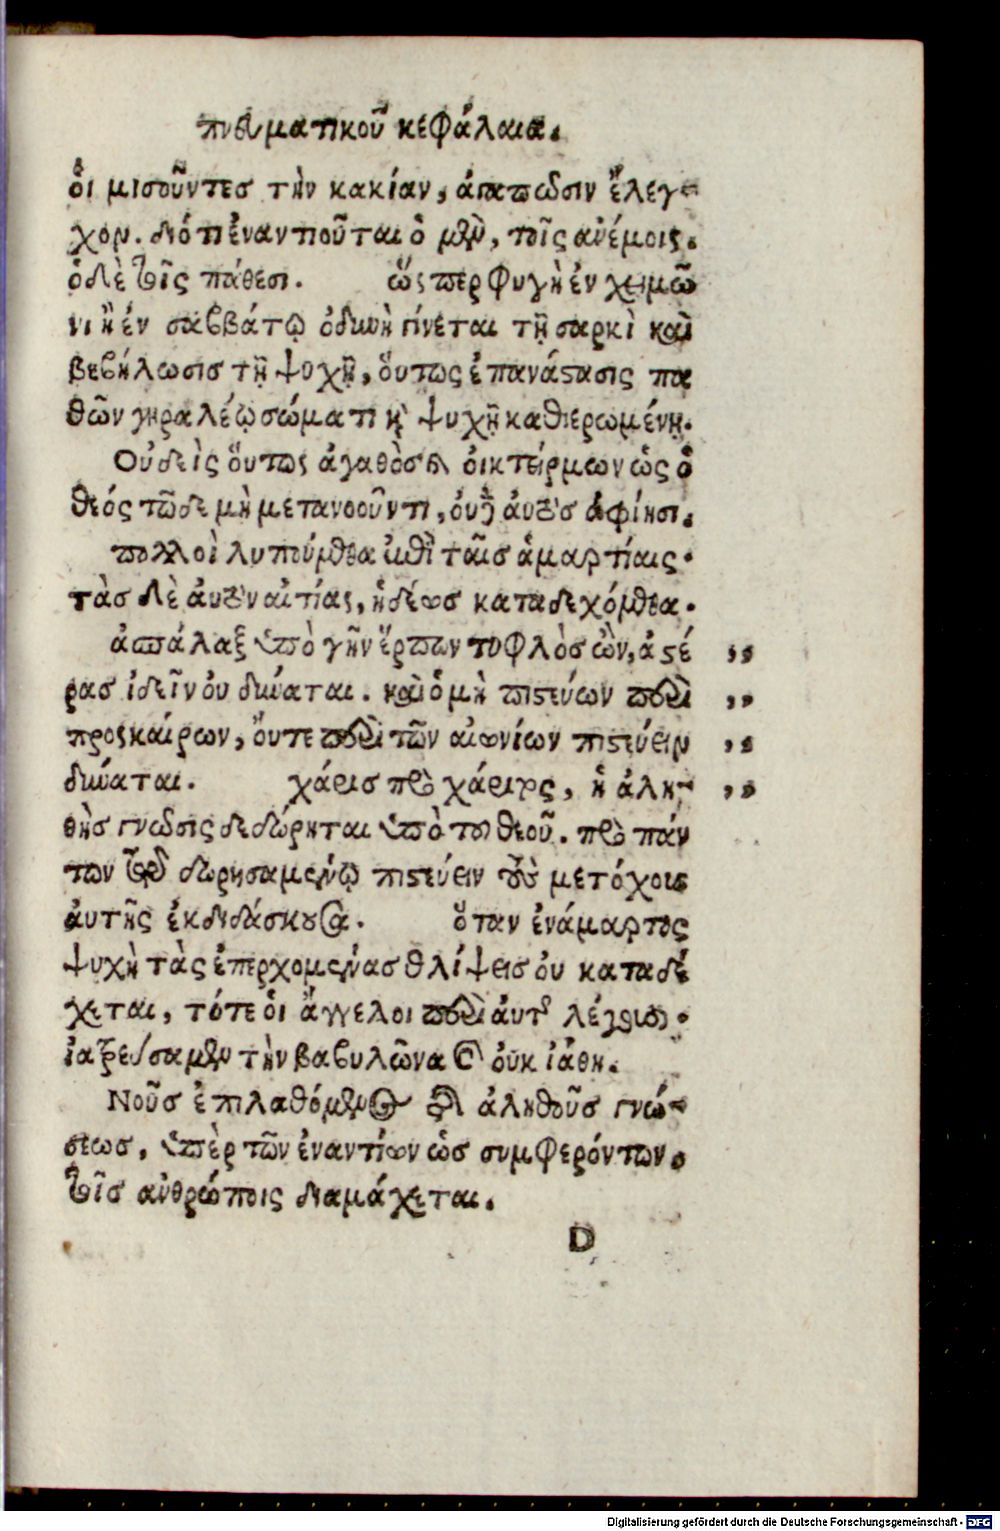 πνευματικοῦ κεφάλαια.
ὁι μισοῦντεσ τὴν κακίαν, ἀπατωσιν ἔλεγ-
χον. διότι ἐναντιοῦται ὁ μὲν, τοῖς ἀνέμοις.
ὁ δὲ τοῖς πάθεσι. ὥσπερ φυγὴ ἐν χειμῶ
νι ἢ ἐν σαββάτῳ ὀδύνη γίνεται τῇ σαρκὶ καὶ
βεβήλωσισ τῇ ψυχῇ, ὅυτως ἐπανάστασις πα
θῶν γηραλέῳ σώματι καὶ ψυχῇ καθιερωμένῃ.
Οὐδεὶς ὅυτως ἀγαθὸσ καὶ ὀικτείρμων ὡς ὁ
θεός τῶ δε μὴ μετανοοῦντι, ὀυδ' ἀυτὸσ ἀφίησι.
πολλοὶ λυπούμεθα ἐπὶ ταῖσ ἁμαρτίαις.
τὰσ δὲ ἀυτῶν αἰτίας, ἡδέωσ καταδεχόμεθα.
ἀσπάλαξ ὑπὸ γῆν ἕρπων τυφλὸσ ὢν, ἀστέ ,,
ρασ ἰδεῖν ὀυ δύναται. καὶ ὁ μὴ πιστεύων περὶ ,,
προσκαίρων, ὄυτε περὶ τῶν αἰωνίων πιστεύειν ,,
δύναται. χάρισ πρὸ χάριτος, ἡ ἀλη- ,,
θὴσ γνῶσις δεδώρηται ὑπὸ του θεοῦ. πρὸ πάν
των τῷ δωρησαμένῳ πιστεύειν τοὺσ μετόχους
ἀυτῆς ἐκδιδάσκουσα. ὅταν ἐνάμαρτος
ψυχὴ τὰς ἐπερχομένασ θλίψεισ ὀυ καταδέ
χεται, τότε ὁι ἄγγελοι περὶ ἀυτῆσ λέγουσιν.
ἰατρεύσαμεν τὴν βαβυλῶνα καὶ ὀυκ ἰάθη.
Νοῦσ ἐπιλαθόμενος τῆς ἀληθοῦσ γνώ-
σεωσ, ὑπὲρ τῶν ἐναντίων ὡσ συμφερόντων.
τοῖσ ἀνθρώποις διαμάχεται.
D
Digitalisierung gefördert durch die Deutsche Forschungsgemeinschaft - DFG